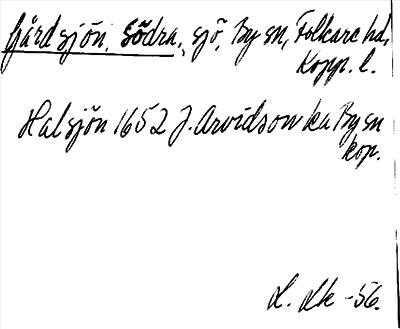 fjärdsjön, Södra, sjö, By sn, Folkare hd,
Kopp. l.
Halsjön 1652 J. Arvidson ka By sn
kop.
-56.